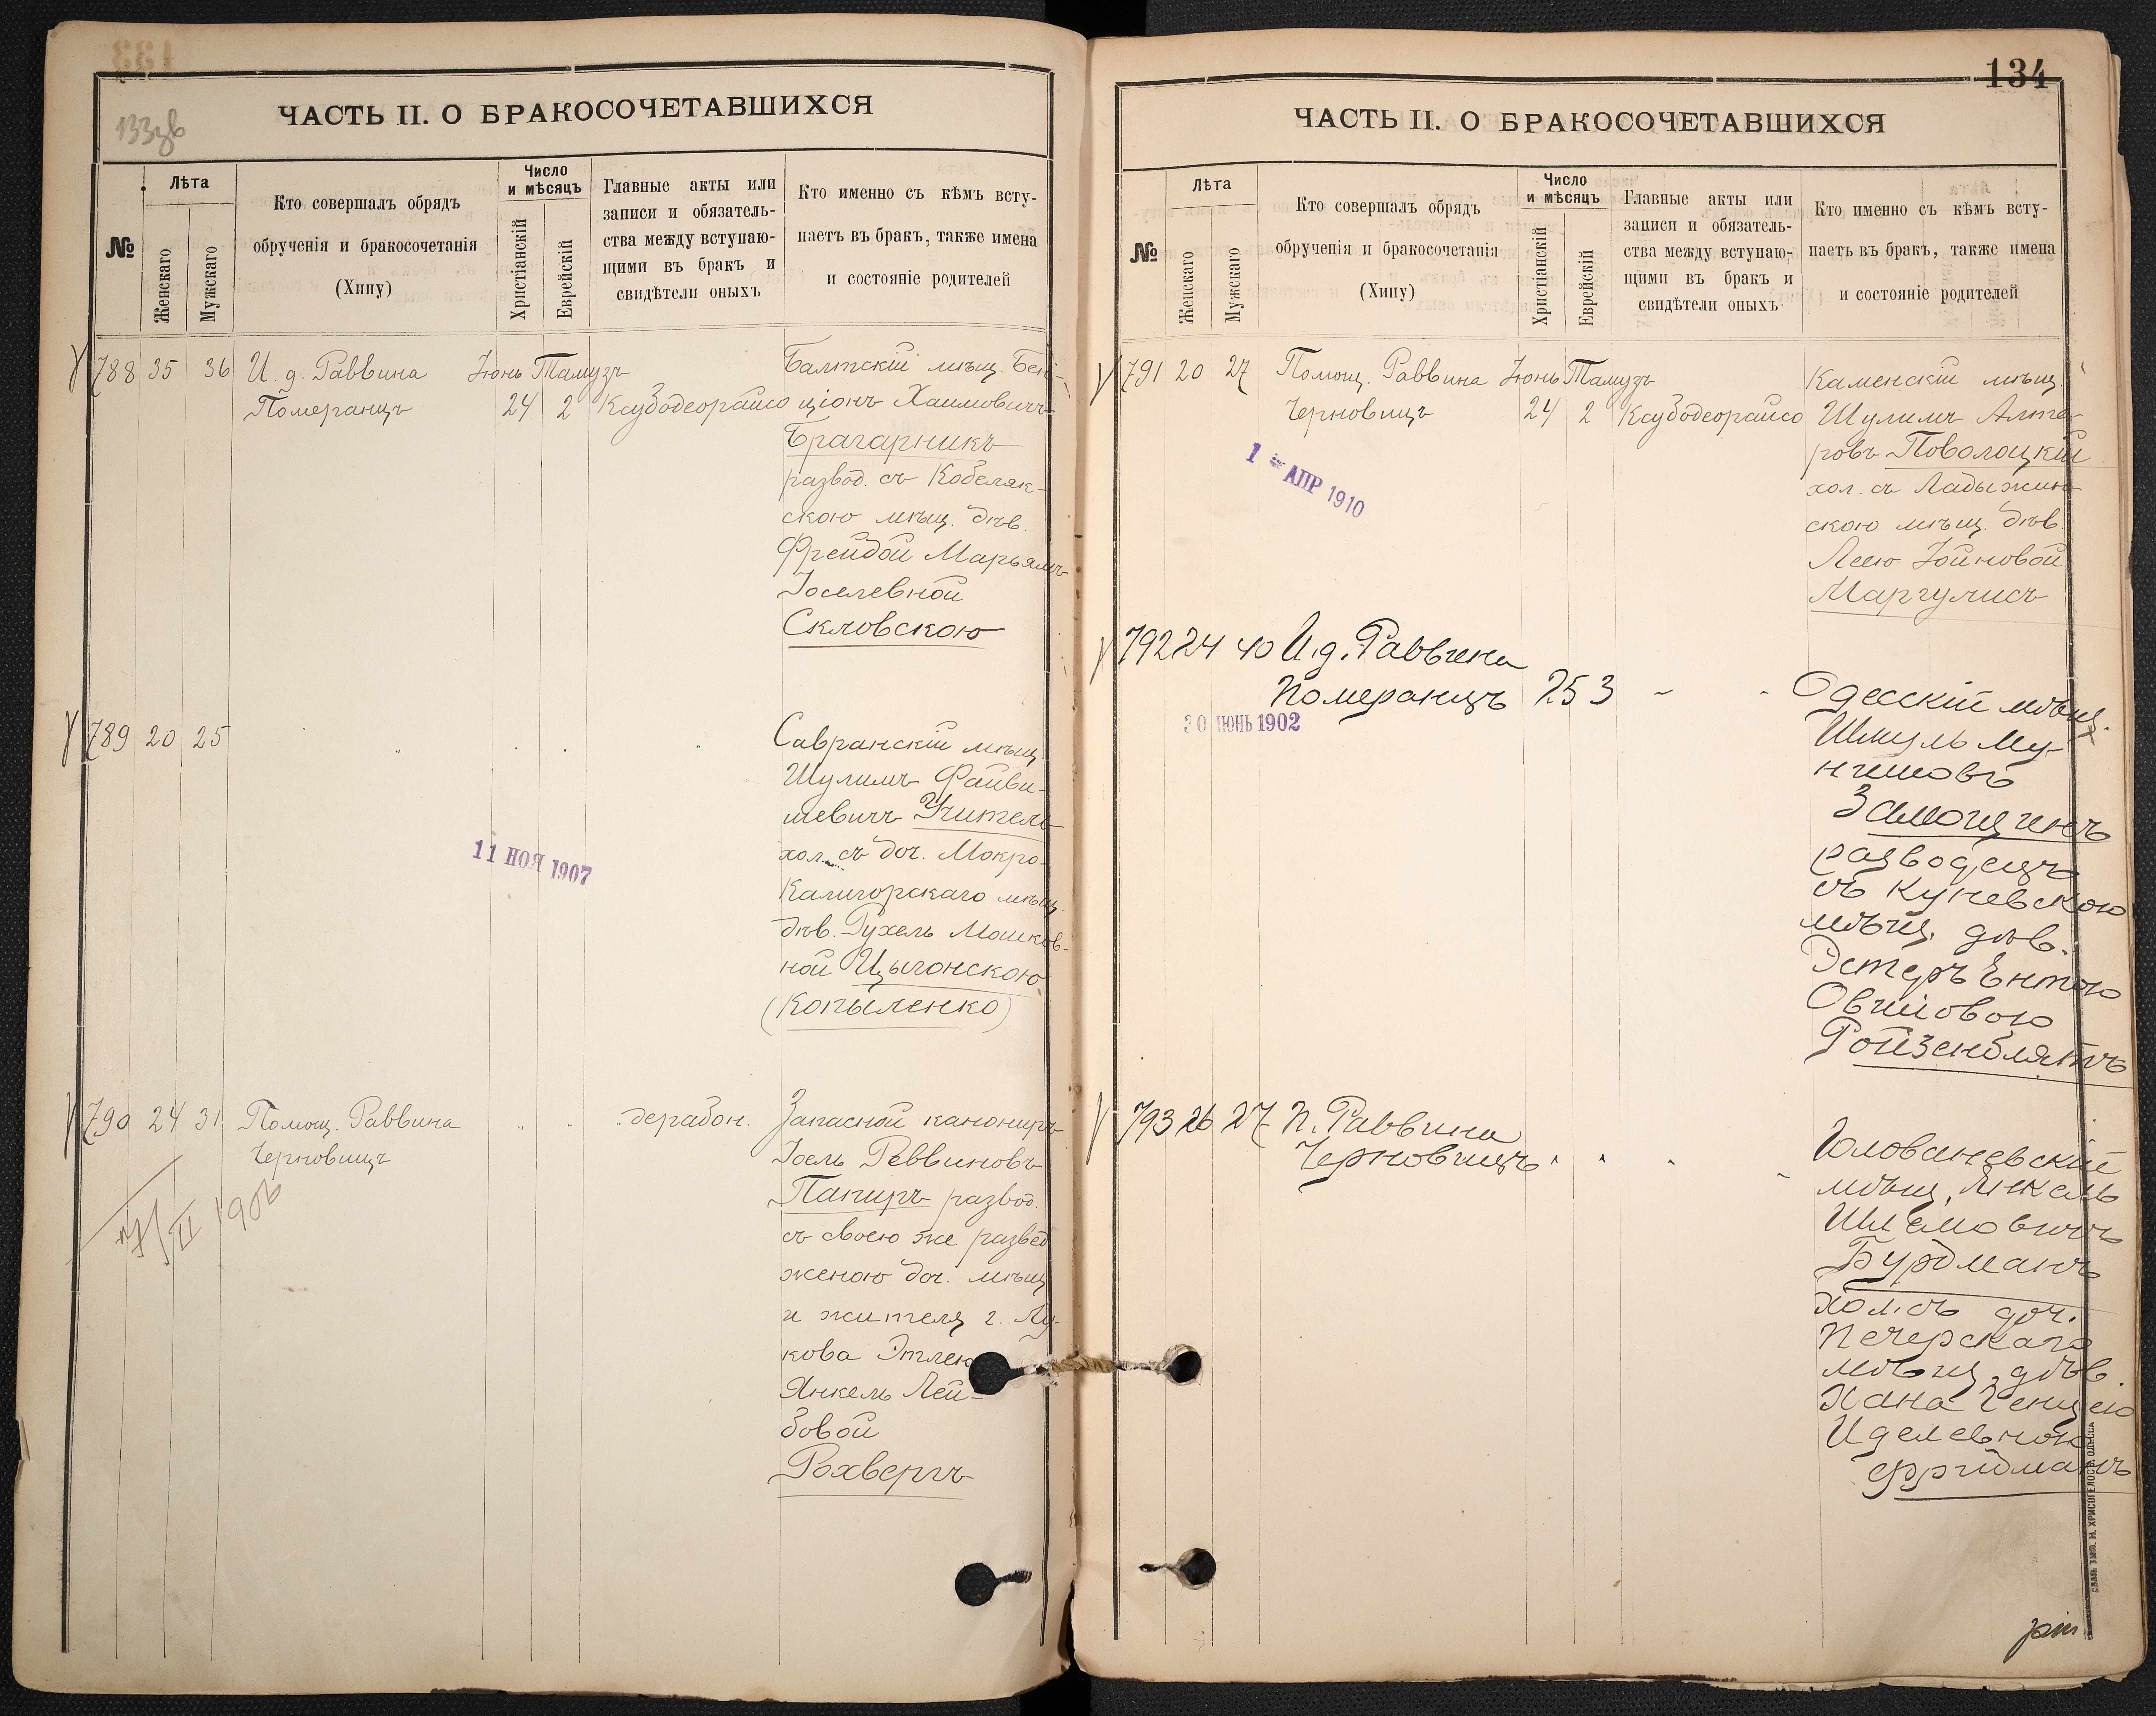 133зв
ЧАСТЬ II. О БРАКОСОЧЕТАВШИХСЯ
№
Лѣта
Женскаго
Мужскаго
Кто совершалъ обрядъ
обрученія и бракосочетанія
(Хипу)
Число
и мѣсяцъ
Христіанскій
Еврейскій
Главные акты или
записи и обязатель-
ства между вступаю-
щими въ бракъ и
свидѣтели оныхъ
Кто именно съ кѣмъ всту-
паетъ въ бракъ, также имена
и состояніе родителей
788 35 36 И. д. Раввина Іюнь Тамузъ Балтскій мѣщ. Бен-
Померанцъ 24 2 Ксубодеорайсо ціонъ Хаимовичъ
Брагарникъ
развод. съ Кобеляк-
скою мѣщ. дѣв.
Фрейдой Марьямъ
Іоселевной
Скловскою
789 20 25 Савранскій мѣщ.
Шулимъ Файви-
шевичъ Учитель
хол. съ доч. Мокро-
Калигорскаго мѣщ.
дѣв. Рухель Мошков-
ной Цыгонскою
(Копыленко)
11 НОЯ 1907
790 24 31 Помощ. Раввина дерабон. Запасной канониръ
Черновицъ Іоель Реввиновъ
Папиръ развод.
съ своею же развед
женою доч. мѣщ
и жителя г. Лу-
кова Этлею
Янкель Лей-
бовой
Рохвергъ
II 1906
134
ЧАСТЬ II. О БРАКОСОЧЕТАВШИХСЯ
№
Лѣта
Женскаго
Мужскаго
Кто совершалъ обрядъ
обрученія и бракосочетанія
(Хипу)
Число
и мѣсяцъ
Христіанскій
Еврейскій
Главные акты или
записи и обязатель-
ства между вступаю-
щими въ бракъ и
свидѣтели оныхъ
Кто именно съ кѣмъ всту-
паетъ въ бракъ, также имена
и состояніе родителей
791 20 27 Помощ. Раввина Іюнь Тамузъ Каменскій мѣщ.
Черновицъ 24 2 Ксубодеорайсо Шулимъ Алте-
ровъ Поволоцкій
хол. съ Ладыжин-
скою мѣщ. дѣв.
Леею Іойновой
Маргулисъ
1 АПР 1910
792 24 40 И. д. Раввина
Померанцъ 25 3 Одесскій мѣщ.
Шмуль Му-
нишовъ
Замощинъ
разводецъ
съ Куневскою
мѣщ. дѣв.
Эстеръ Ентою
Овшіовою
Ройзенблятъ
30 ІЮНЬ 1902
793 26 27 П. Раввина
Черновицъ Голованевскій
мѣщ. Янкель
Шлемовичъ
Бурдманъ
хол. съ доч.
Печерскаго
мѣщ. дѣв.
Хана Генцею
Иделевною
Фридманъ
СЛАВ. ТИП. Н. ХРИСОГЕЛОСЪ ОДЕССА